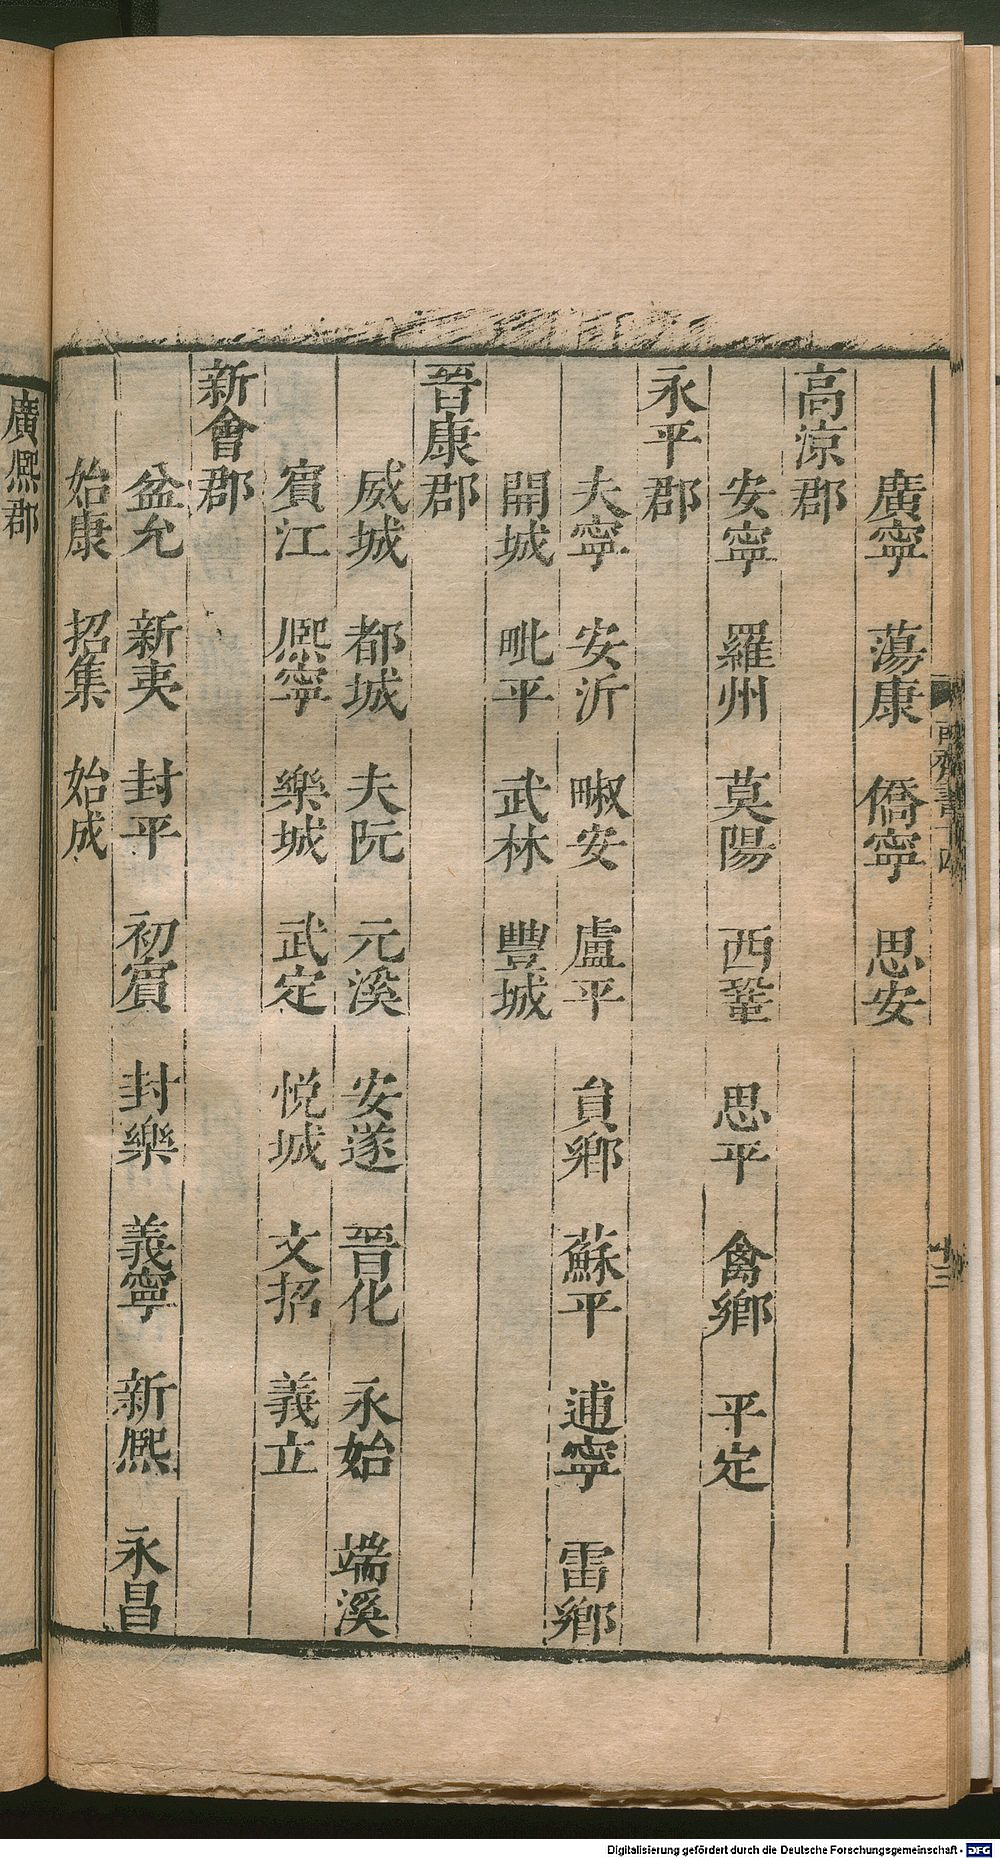 南齊書十四
十三
廣寧　蕩康　僑寧　思安
高涼郡
安寧　羅州　莫陽　西鞏　思平　禽鄉　平定
永平郡
夫寧　安沂　㽛安　盧平　員鄉　蘇平　逋寧　雷鄉
開城　毗平　武林　豐城
晉康郡
威城　都城　夫阮　元溪　安遂　晉化　永始　端溪
賓江　熙寧　樂城　武定　悅城　文招　義立
新會郡
盆允　新夷　封平　初賓　封樂　義寧　新熙　永昌
始康　招集　始成
廣熙郡
Digitalisierung gefördert durch die Deutsche Forschungsgemeinschaft - DFG